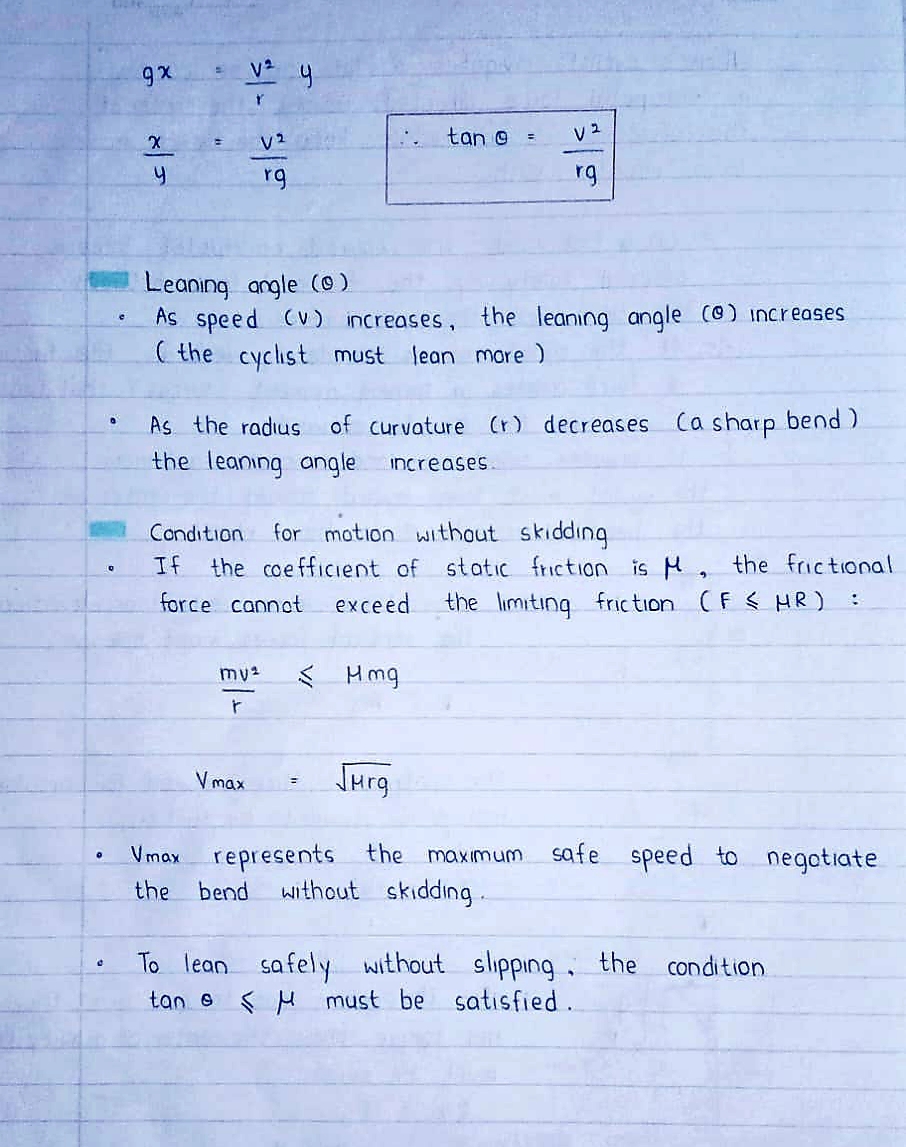 gx = v²/r y
x/y = v²/rg ∴ tan θ = v²/rg
Leaning angle (θ)
• As speed (v) increases, the leaning angle (θ) increases
( the cyclist must lean more )
• As the radius of curvature (r) decreases (a sharp bend)
the leaning angle increases.
Condition for motion without skidding
• If the coefficient of static friction is μ, the frictional
force cannot exceed the limiting friction ( F ⩽ μR ) :
mv²/r ⩽ μmg
Vmax = √μrg
• Vmax represents the maximum safe speed to negotiate
the bend without skidding.
• To lean safely without slipping, the condition
tan θ ⩽ μ must be satisfied.